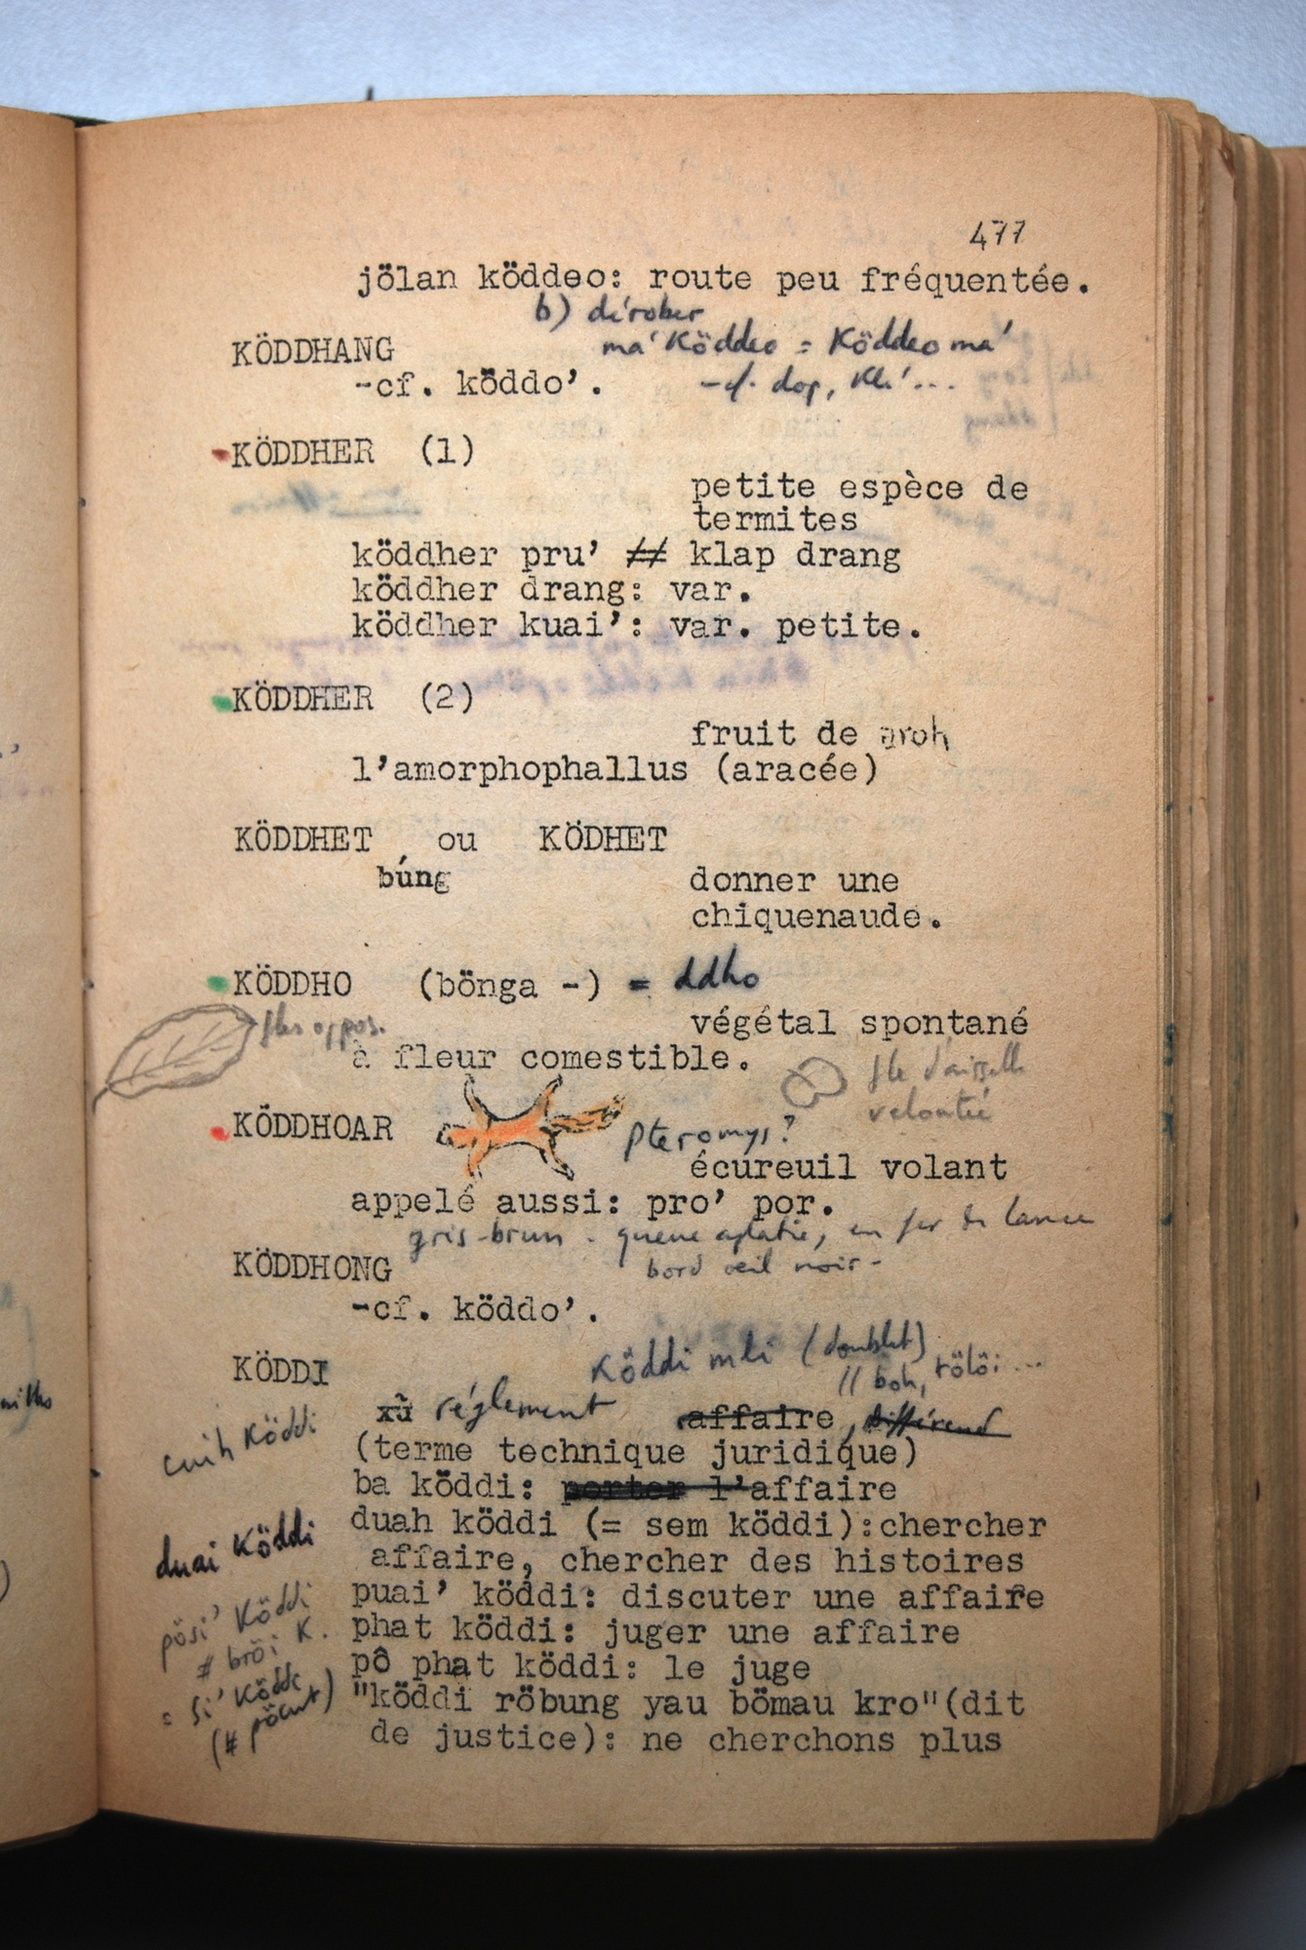 477
jölan köddeo: route peu fréquentée.
b) dérober
KÖDDHANG
má Köddeo = Köddeo má
-cf. köddo’.
-cf. dop,
KÖDDHER (1)
petite espèce de
termites
köddher pru’ # klap drang
köddher drang: var.
köddher kuai’: var. petite.
KÖDDHER (2)
fruit de groh
l’amorphophallus (aracée)
KÖDDHET ou KÖDHET
búng donner une
chiquenaude.
KÖDDHO (bönga -) = ddho
végétal spontané
à fleur comestible.
velouté
KÖDDHOAR
Pteromys?
écureuil volant
appelé aussi: pro’ por.
gris-brun - queue aplatie, en fer de lance
bord oeil noir -
KÖDDHONG
-cf. köddo’.
KÖDDI
Köddi mli (doublet)
// böh, tölöi ...
xŭ réglement affaire, différend
(terme technique juridique)
ba köddi: porter l’affaire
duah köddi (= sem köddi):chercher
affaire, chercher des histoires
puai’ köddi: discuter une affaire
phat köddi: juger une affaire
pô phat köddi: le juge
"köddi röbung yau bömau kro"(dit
de justice): ne cherchons plus
cuih Köddi
duai Köddi
pösi’ Köddi
# bröi K.
= si’ Köddi